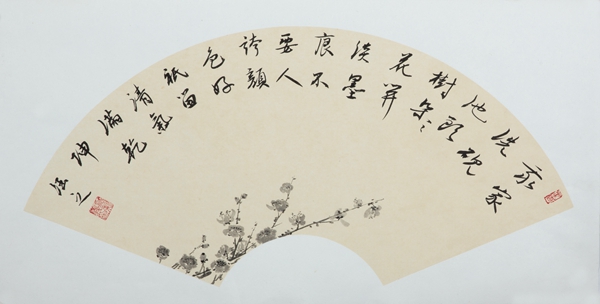 我家
洗硯
池頭
樹朵々
花开
淡墨
痕不
要人
誇顏
色好
祇留
清氣
滿乾
坤